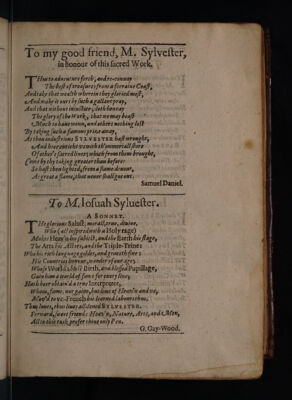 To my good friend, M. Sylvester,
in honour of this sacred Work.
THus to adventure forth, and re-convay
The best of treasures from a forraine Coast,
And take that wealth wherein they gloried most,
And make it ours by such a gallant pray,
And that without injustice, doth bewray
The glory of the Work, that we may boast
Much to have wonne, and others nothing lost
By taking such a famous prize away,
As thou industrious SYLVESTER hast wrought,
And heere enricht us with th'immortall store
Of other's sacred lines; which from them brought,
Comes by thy taking greater than before:
So hast thou lighted, from a flame devout,
As great a flame, that never shall goe out.
Samuel Daniel.
To M. Iosuah Syluester.
A SONNET.
THe glorious Salust, morall, true, divine,
Who (all inspired with a Holy rage)
Makes Heav'n his subject, and the Earth his stage,
The Arts his Actors, and the Triple-Trine:
Who his rich language golden, and
His Countries honour, wonder of our age;
Whose World's blest Birth, and blessed Pupillage,
Gain him a world of fame for every line;
Hath heer obtain'd a true Interpreter,
Whom, fame, nor gain, but love of Heav'n and us,
Mov'd to un-French his learned labours thus.
Thus loves, thus lives all-lov'd SYLVESTER.
Forward, sweet friend: Heav'n, Nature, Arts, and Men,
All to this task, prefer thine only Pen.
G. Gay-Wood.